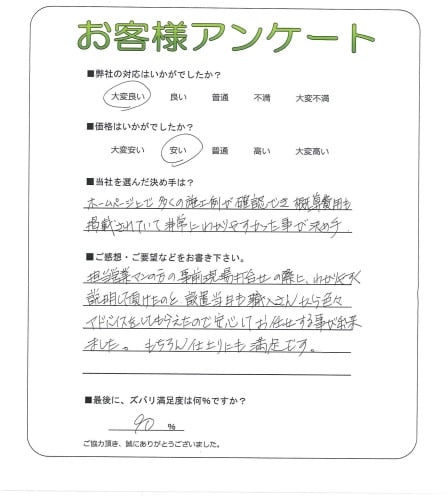 お客様アンケート
■弊社の対応はいかがでしたか？
大変良い 良い 普通 不満 大変不満
■価格はいかがでしたか？
大変安い 安い 普通 高い 大変高い
■当社を選んだ決め手は？
ホームページ上で多くの施工例が確認でき概算費用も
掲載されていて非常にわかりやすかった事が決め手
■ご感想・ご要望などをお書き下さい。
担当営業マンの方の事前現場打合せの際に、わかりやすく
説明して頂けたのと設置当日も職人さんから色々
アドバイスをしてもらえたので安心してお任せする事が出来
ました。もちろん仕上りにも満足です。
■最後に、ズバリ満足度は何%ですか？
90 %
ご協力頂き、誠にありがとうございました。